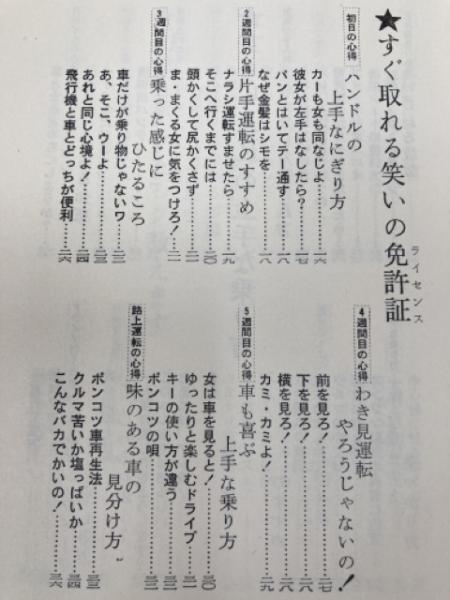 ★すぐ取れる笑いの免許証
ライセンス
初日の心得
ハンドルの
上手なにぎり方
カーも女も同なじよ……一六
彼女が左手はなしたら？……一七
パンとはいてテー通す……一八
なぜ金髪はシモを……一八
2週間目の心得
片手運転のすすめ
ナラシ運転すませたら……一九
そこへ行くまでには……二〇
頭かくして尻かくさず……二一
ま・まくる女に気をつけろ！……二一
3週間目の心得
乗った感じに
ひたるころ
車だけが乗り物じゃないワ……二二
あ、そこ、ウーよ……二三
あれと同じ心境よ！……二四
飛行機と車とどっちが便利……二六
4週間目の心得
わき見運転
やろうじゃないの！
前を見ろ！……二七
下を見ろ！……二八
横を見ろ！……二八
カミ・カミよ！……二九
5週間目の心得
車も喜ぶ
上手な乗り方
女は車を見ると！……三〇
ゆったりと楽しむドライブ
キーの使い方が違う……三一
ポンコツの唄……三二
路上運転の心得
味のある車の
見分け方
ポンコツ車再生法……三三
クルマ苦いか塩っぱいか……三四
こんなバカでかいの！……三六